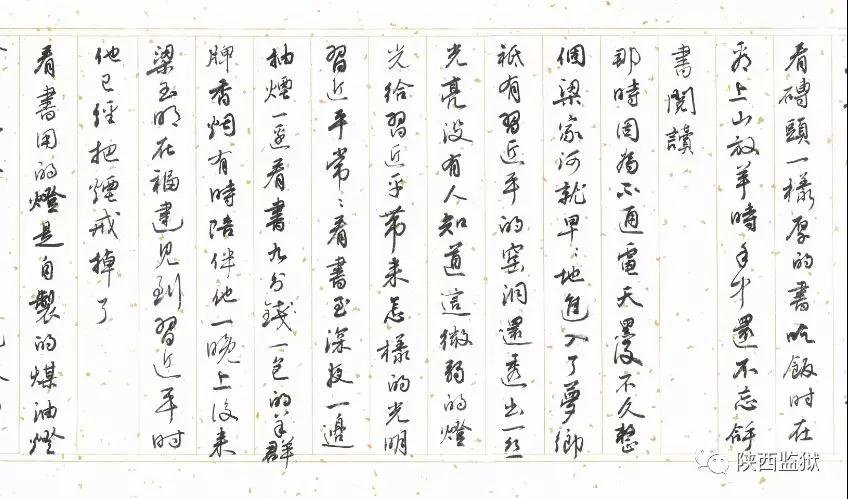 看磚頭一樣厚的書吃飯時在
看上山放羊時手中還不忘
書閱讀
那時因為不通電天黑後不久整
個梁家河就早〻地進入了夢鄉
祇有習近平的窑洞還透出一丝
光亮没有人知道這微弱的燈
光給習近平带来怎樣的光明
習近平常〻看書至深夜一邊
抽煙一邊看書九分錢一包的羊群
牌香烟有時陪伴他一晚上後来
梁玉明在福建見到習近平时
他已經把煙戒掉了
看書用的燈是自製的煤油燈
陕西监狱